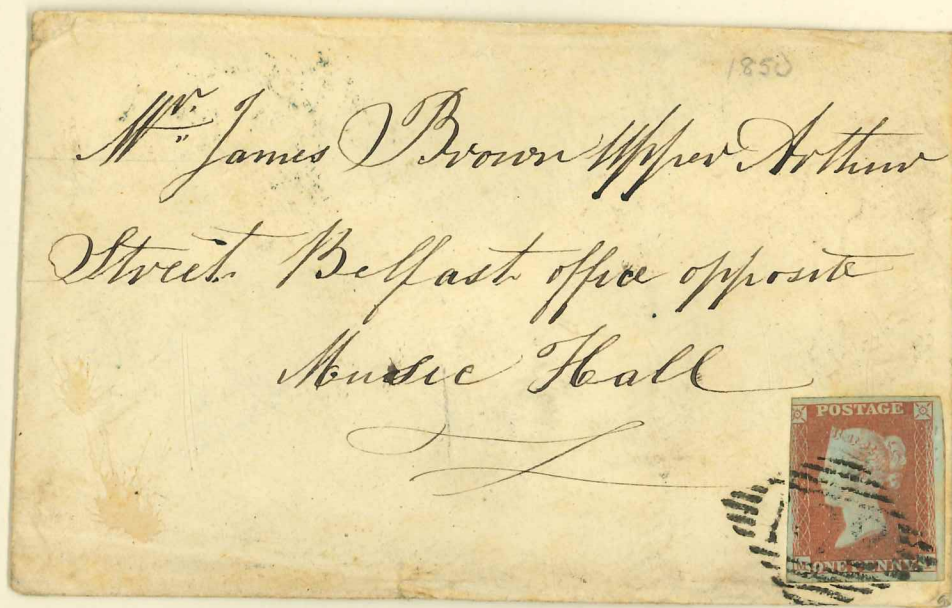 1850
Mr. James Brown Upper Arthur
Street Belfast office opposite
Music Hall
POSTAGE
ONE PENNY